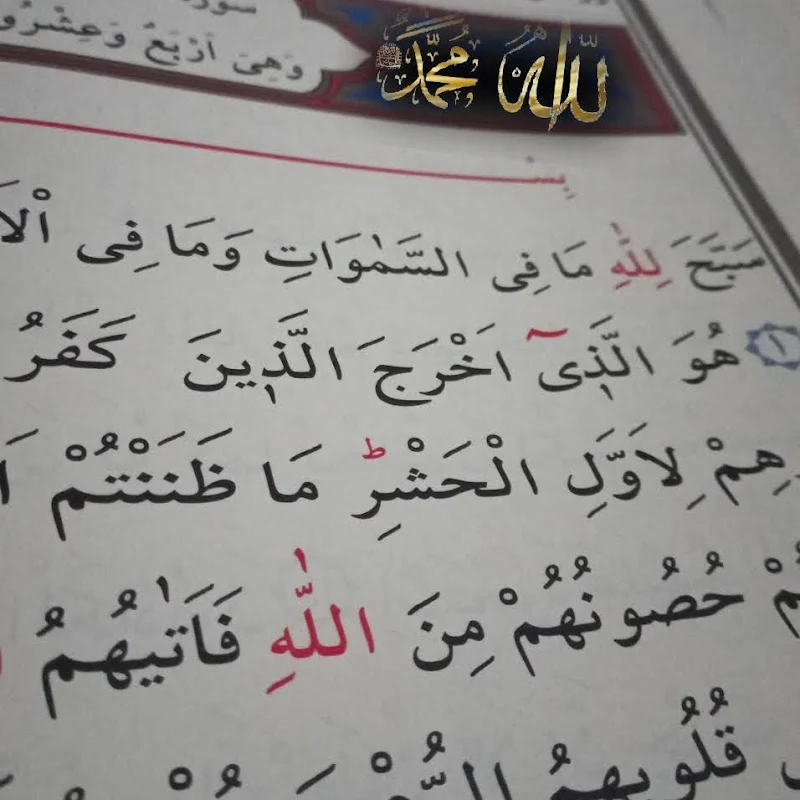 سورة
وَهِىَ اَرْبَعٌ وَعِشْرُو
الله محمد
بِسْ
سَبَّحَ لِلّٰهِ مَا فِى السَّمٰوَاتِ وَمَا فِى الْاَ
١ هُوَ الَّذٖٓى اَخْرَجَ الَّذٖينَ كَفَرُ
هِمْ لِاَوَّلِ الْحَشْرِ ط مَا ظَنَنْتُمْ اَ
مْ حُصُونُهُمْ مِنَ اللّٰهِ فَاَتٰيهُمُ
قُلُوبِهِمُ